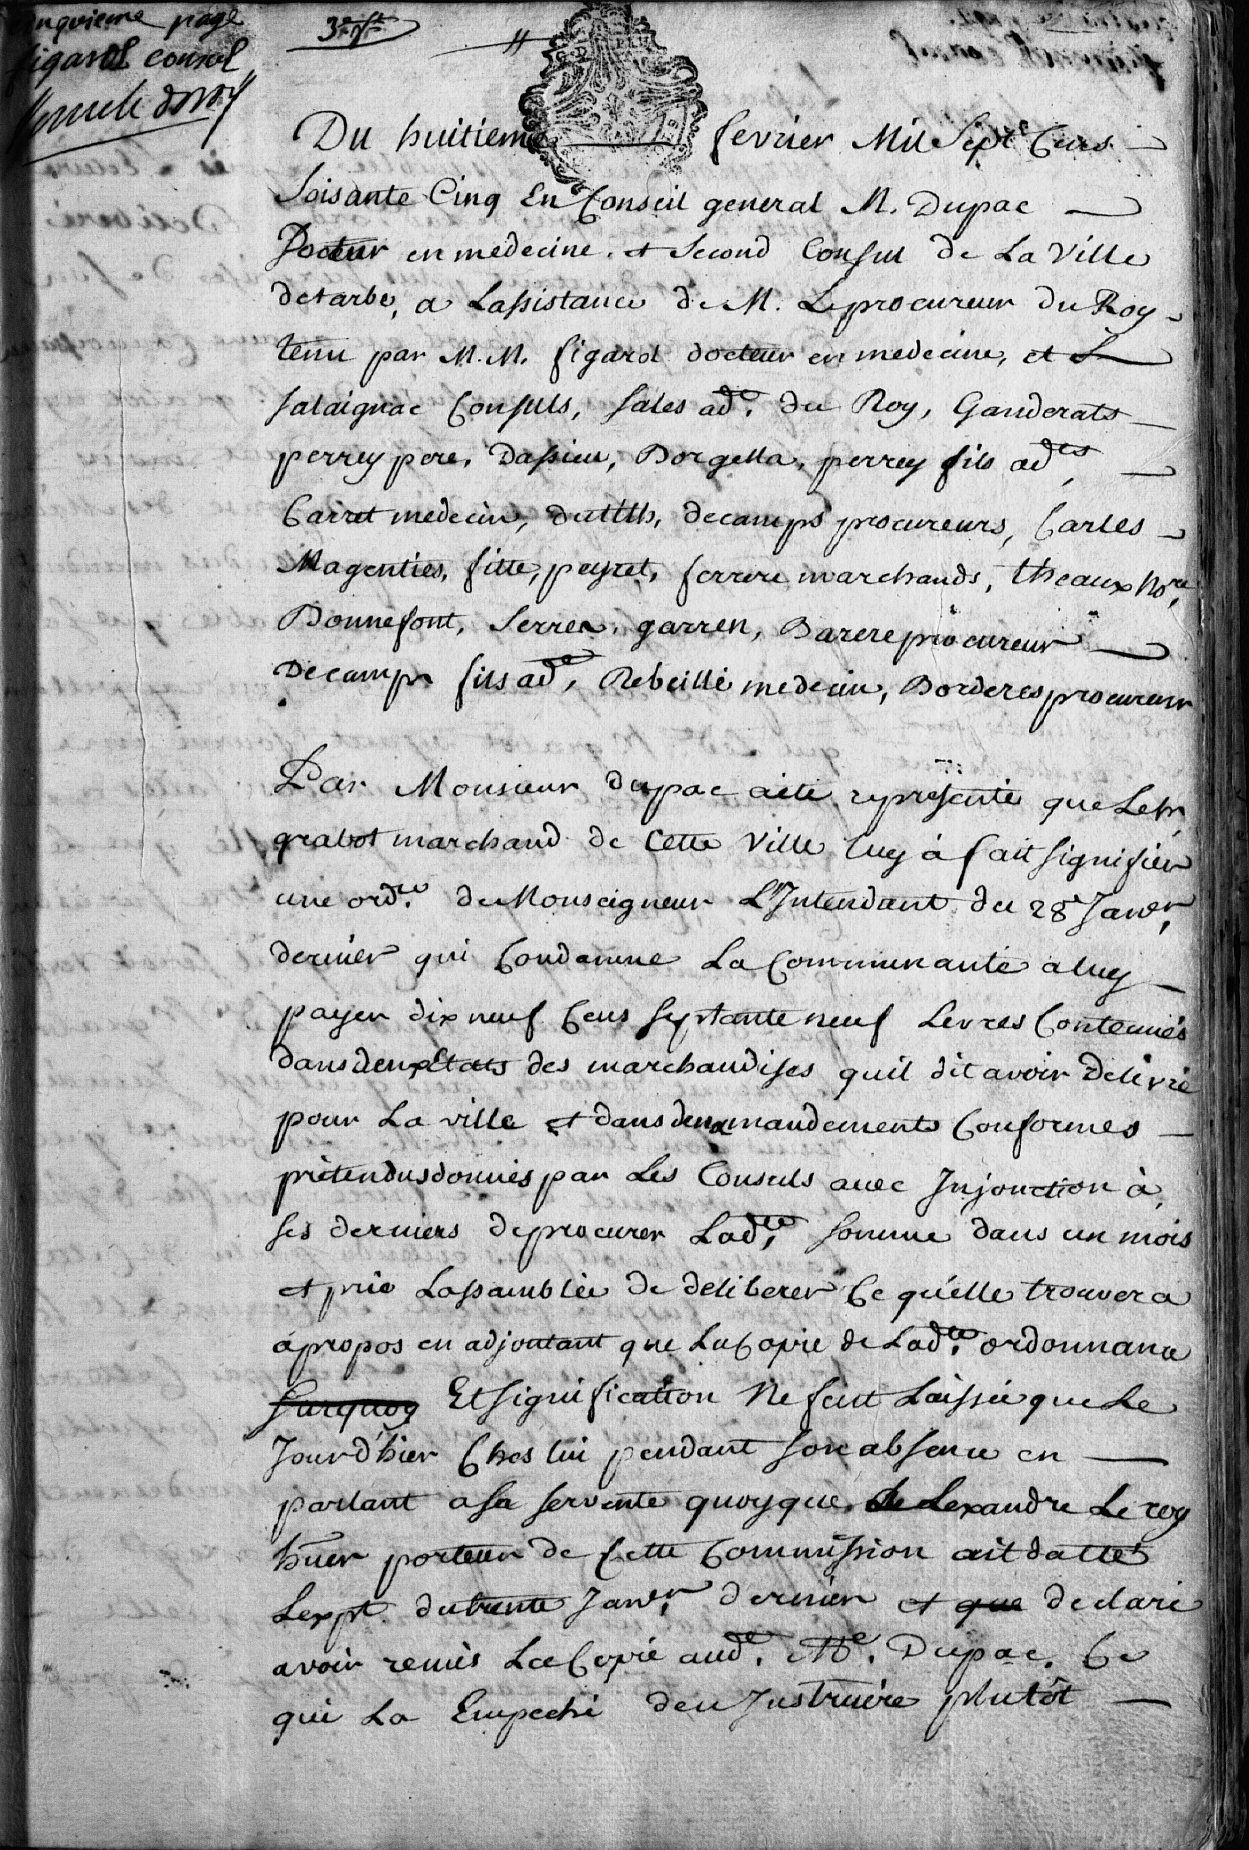 page
figarol consul
3e. 
Du huitieme fevrier Mil Sept Cens
Soisante Cinq En Conseil general M. Dupac
Docteur en medecine, et second Consul de La Ville
detarbe, a Lassistance de M. Le procureur du Roy
tenu par M.M. figarol docteur en medecine, et
salaignac Consuls, sales ade. du Roy, Ganderats
perrey pere, Dassieu, Borgella, perrey fils ades,
Carret medecin, dutilh, decamps procureurs, Carles
Magenties, fitte, peyret, ferrere marchands, theaux Nore,
Bonnefont, Serres, garren, Barere procureur
Decamps fils ade, Rebeille medecin, Borderes procureur
Par Monsieur dupac aété representé que Le sr,
grabot marchand de Cette Ville luy à fait signifier
une ordce. de Monseigneur L'Intendant du 28e Janvr,
dernier qui Condamne La Communauté aluy
payer dix neuf Cens septante neuf Levres Contenuës
dans deux Etats des marchandises quil dit avoir Delivré
pour La ville et dans deux mandements Conformes
prètendus donnés par Les Consuls avec Injonction à
ses derniers deprocurer Ladte, somme dans un mois
et prie Lassamblée de deliberer Ce qu'elle trouvera
apropos en adjoutant que La Copie de Ladte. ordonnance
surquoy Et signification Ne feut Laissée que Le
Jour d'hier Ches lui pendant son absence en
parlant a sa servente quoyque Lexandre Le roy
huer porteur de Cette Commission ait datté
Lexpt. du trente Janvr, dernier et que declaré
avoir remis La Copie aude. Me. Dupac, Ce
qui La Empeché den Instruire plutôt